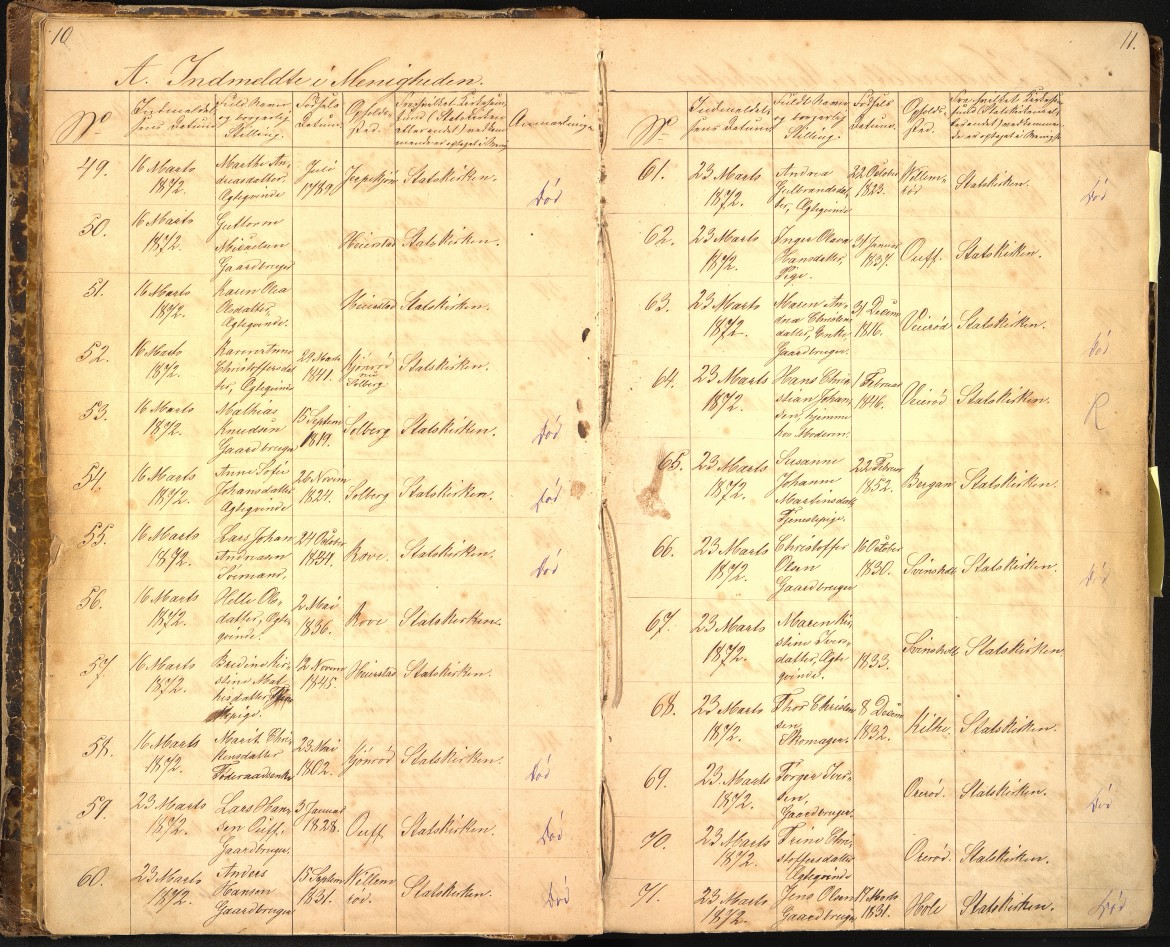 10
A. Indmeldte i Menigheden.
No
Indmeldel-
sens Datum
Fuld Navn
og borgerlig
Stilling
Fødsels
Datum.
Opholds-
sted.
Anmærkninger
49.
16 Marts
1872.
Marthe An-
dreasdatter,
Ægteqvinde
Juli
1789.
Statskirken.
Død
50.
16 Marts
1872.
Guttorm
Gaardbruger
Heierstad
Statskirken.
51.
16 Marts
1872.
Karen Olea
Olsdatter,
Ægteqvinde.
Heierstad
Statskirken.
52.
16 Marts
1872.
Christoffersdat
ter, Ægteqvinde
24 Marts
1841.
Gjönröd
nu
Solberg
Statskirken.
53.
16 Marts
1872.
Mathias
Knudsen
Gaardbruger
15 Septem
1819.
Solberg
Statskirken.
Død
54.
16 Marts
1872.
Anne Sofie
Johansdatter
Ægteqvinde
26 Novem
1824.
Solberg
Statskirken.
Død
55.
16 Marts
1872.
Lars Johan
Andersen
Sömand.
24 October
1834.
Rove.
Statskirken.
Død
56.
16 Marts
1872.
Helle Ols-
datter, Ægte-
qvinde.
2 Mai
1836.
Rove
Statskirken.
57.
16 Marts
1872.
Bredine Kir-
stine Mat-
hisdatter
pige.
12 Novem
1845.
Heierstad
Statskirken.
58.
16 Marts
1872.
Marit Chri-
stensdatter
Föderaadsenke
23 Mai
1802.
Gjönröd
Statskirken.
Død
59.
23 Marts
1872.
Lars Han-
sen Ouff.
Gaardbruger.
3 Januar
1828.
Ouff.
Statskirken.
Død
60.
23 Marts
1872.
Anders
Hansen
Gaardbruger
15 Septem
1831.
Willem
röd.
Statskirken.
Død
11.
No.
Indmeldel-
sens Datum.
Fuldt Navn
og borgerlig
Stilling.
Fødsels
Datum.
Opholds-
sted.
61.
23 Marts
1872.
Andrea
Gulbrandsdat-
ter, Ægteqvinde
22 October
1823.
Willem-
röd
Statskirken.
Død
62.
23 Marts
1872.
Inger Olava
Hansdatter,
Pige.
31 Januar
1837.
Ouff.
Statskirken.
63.
23 Marts
1872.
Maren An-
drea Christen
datter, Enke
Gaardbruger.
31 Decem
1816.
Veieröd
Statskirken.
Død
64.
23 Marts
1872.
Hans Chri-
stian Johan-
sen, hjemme
hos Moderen.
1 Februar
1846.
Veieröd
Statskirken.
R
65.
23 Marts
1872.
Susanne
Johanne
Martinsdatt
Tjenestepige.
22 Februar
1852.
Bergan
Statskirken.
66.
23 Marts
1872.
Christoffer
Olsen
Gaardbruger
16 October
1830.
Svinsholt
Statskirken.
Død
67.
23 Marts
1872.
Maren Kir-
stine Iver-
datter, Ægte-
qvinde.
1833.
Svinsholt
Statskirken.
68.
23 Marts
1872.
Thor Christen
sen
Skomager.
8 Decem
1832.
Hilhe.
Statskirken.
69.
23 Marts
1872.
Torger Iver-
sen,
Gaardbruger.
Oreröd.
Statskirken.
Død
70.
23 Marts
1872.
Trine Chri-
stoffersdatter
Ægteqvinde
Oreröd.
Statskirken.
71.
23 Marts
1872.
Jens Olsen
Gaardbruger
17 Marts
1831.
Hole
Statskirken.
Død